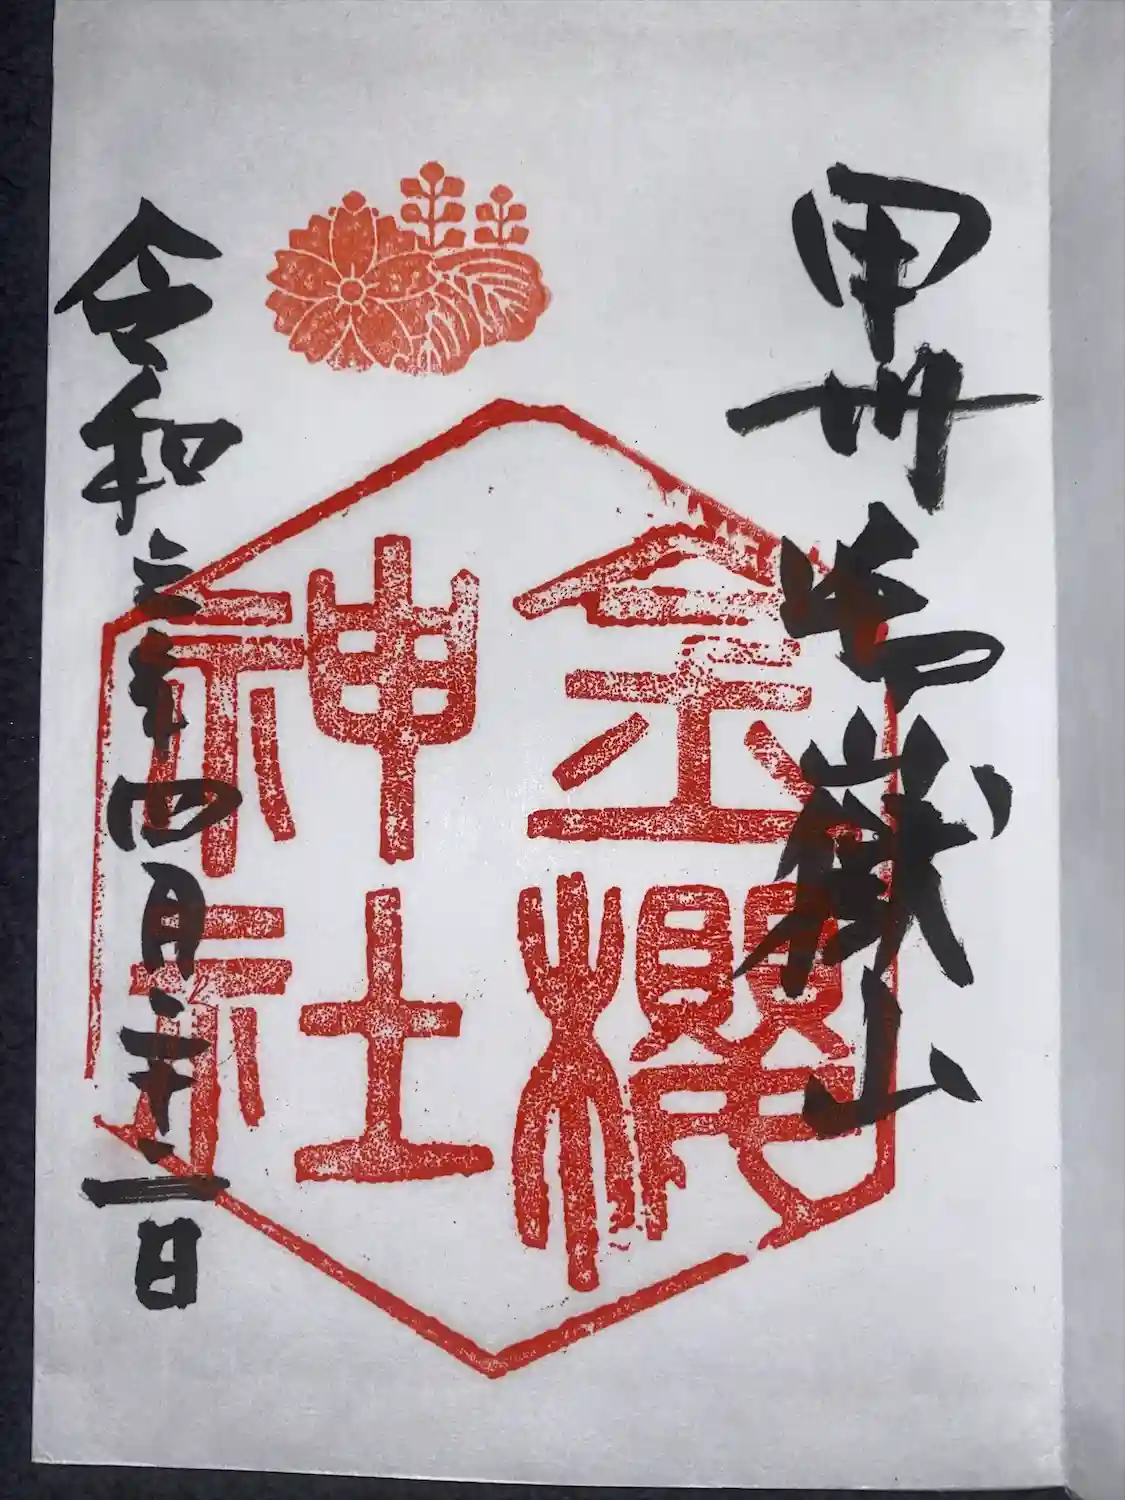 甲州御嶽山
金櫻
神社
令和三年四月二十二日